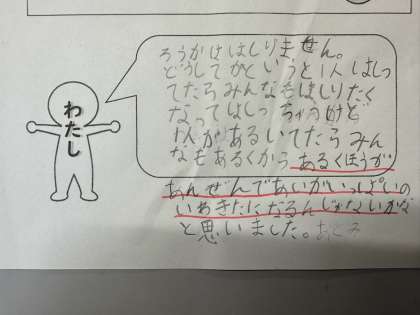 わたし
ろうかははしりません。
どうしてかというと1人はしっ
てたらみんなもはしりたく
なってはしっちゃうけど
1人があるいてたらみん
なもあるくからあるくほうが
あんぜんであいがいっぱいの
いわきたになるんじゃないかな
と思いました。